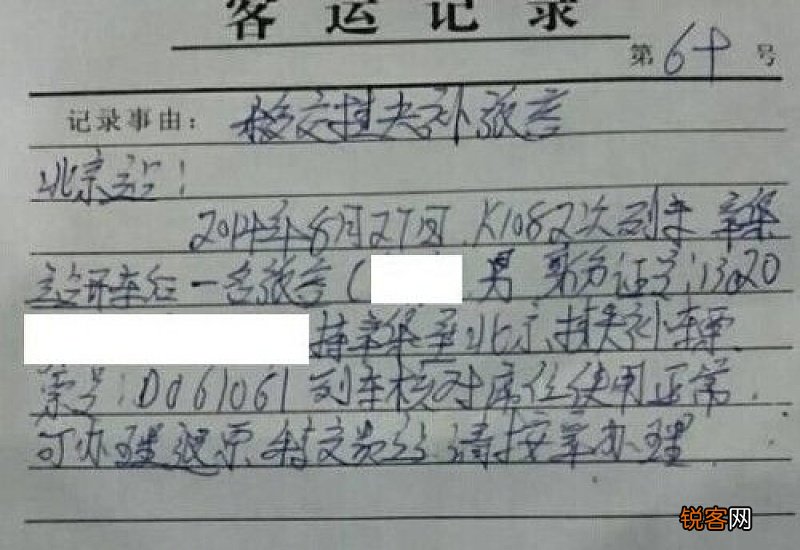 客运记录
第 64 号
记录事由：移交挂失补旅客
北京站：
2014年8月27日，K1082次列车 辛集
站开车后一名旅客（ 男 身份证号：13020
持辛集至北京挂失补车票
票号：D061061 列车核对席位使用正常.
可办理退票 特交贵站 请按章办理
锐客网